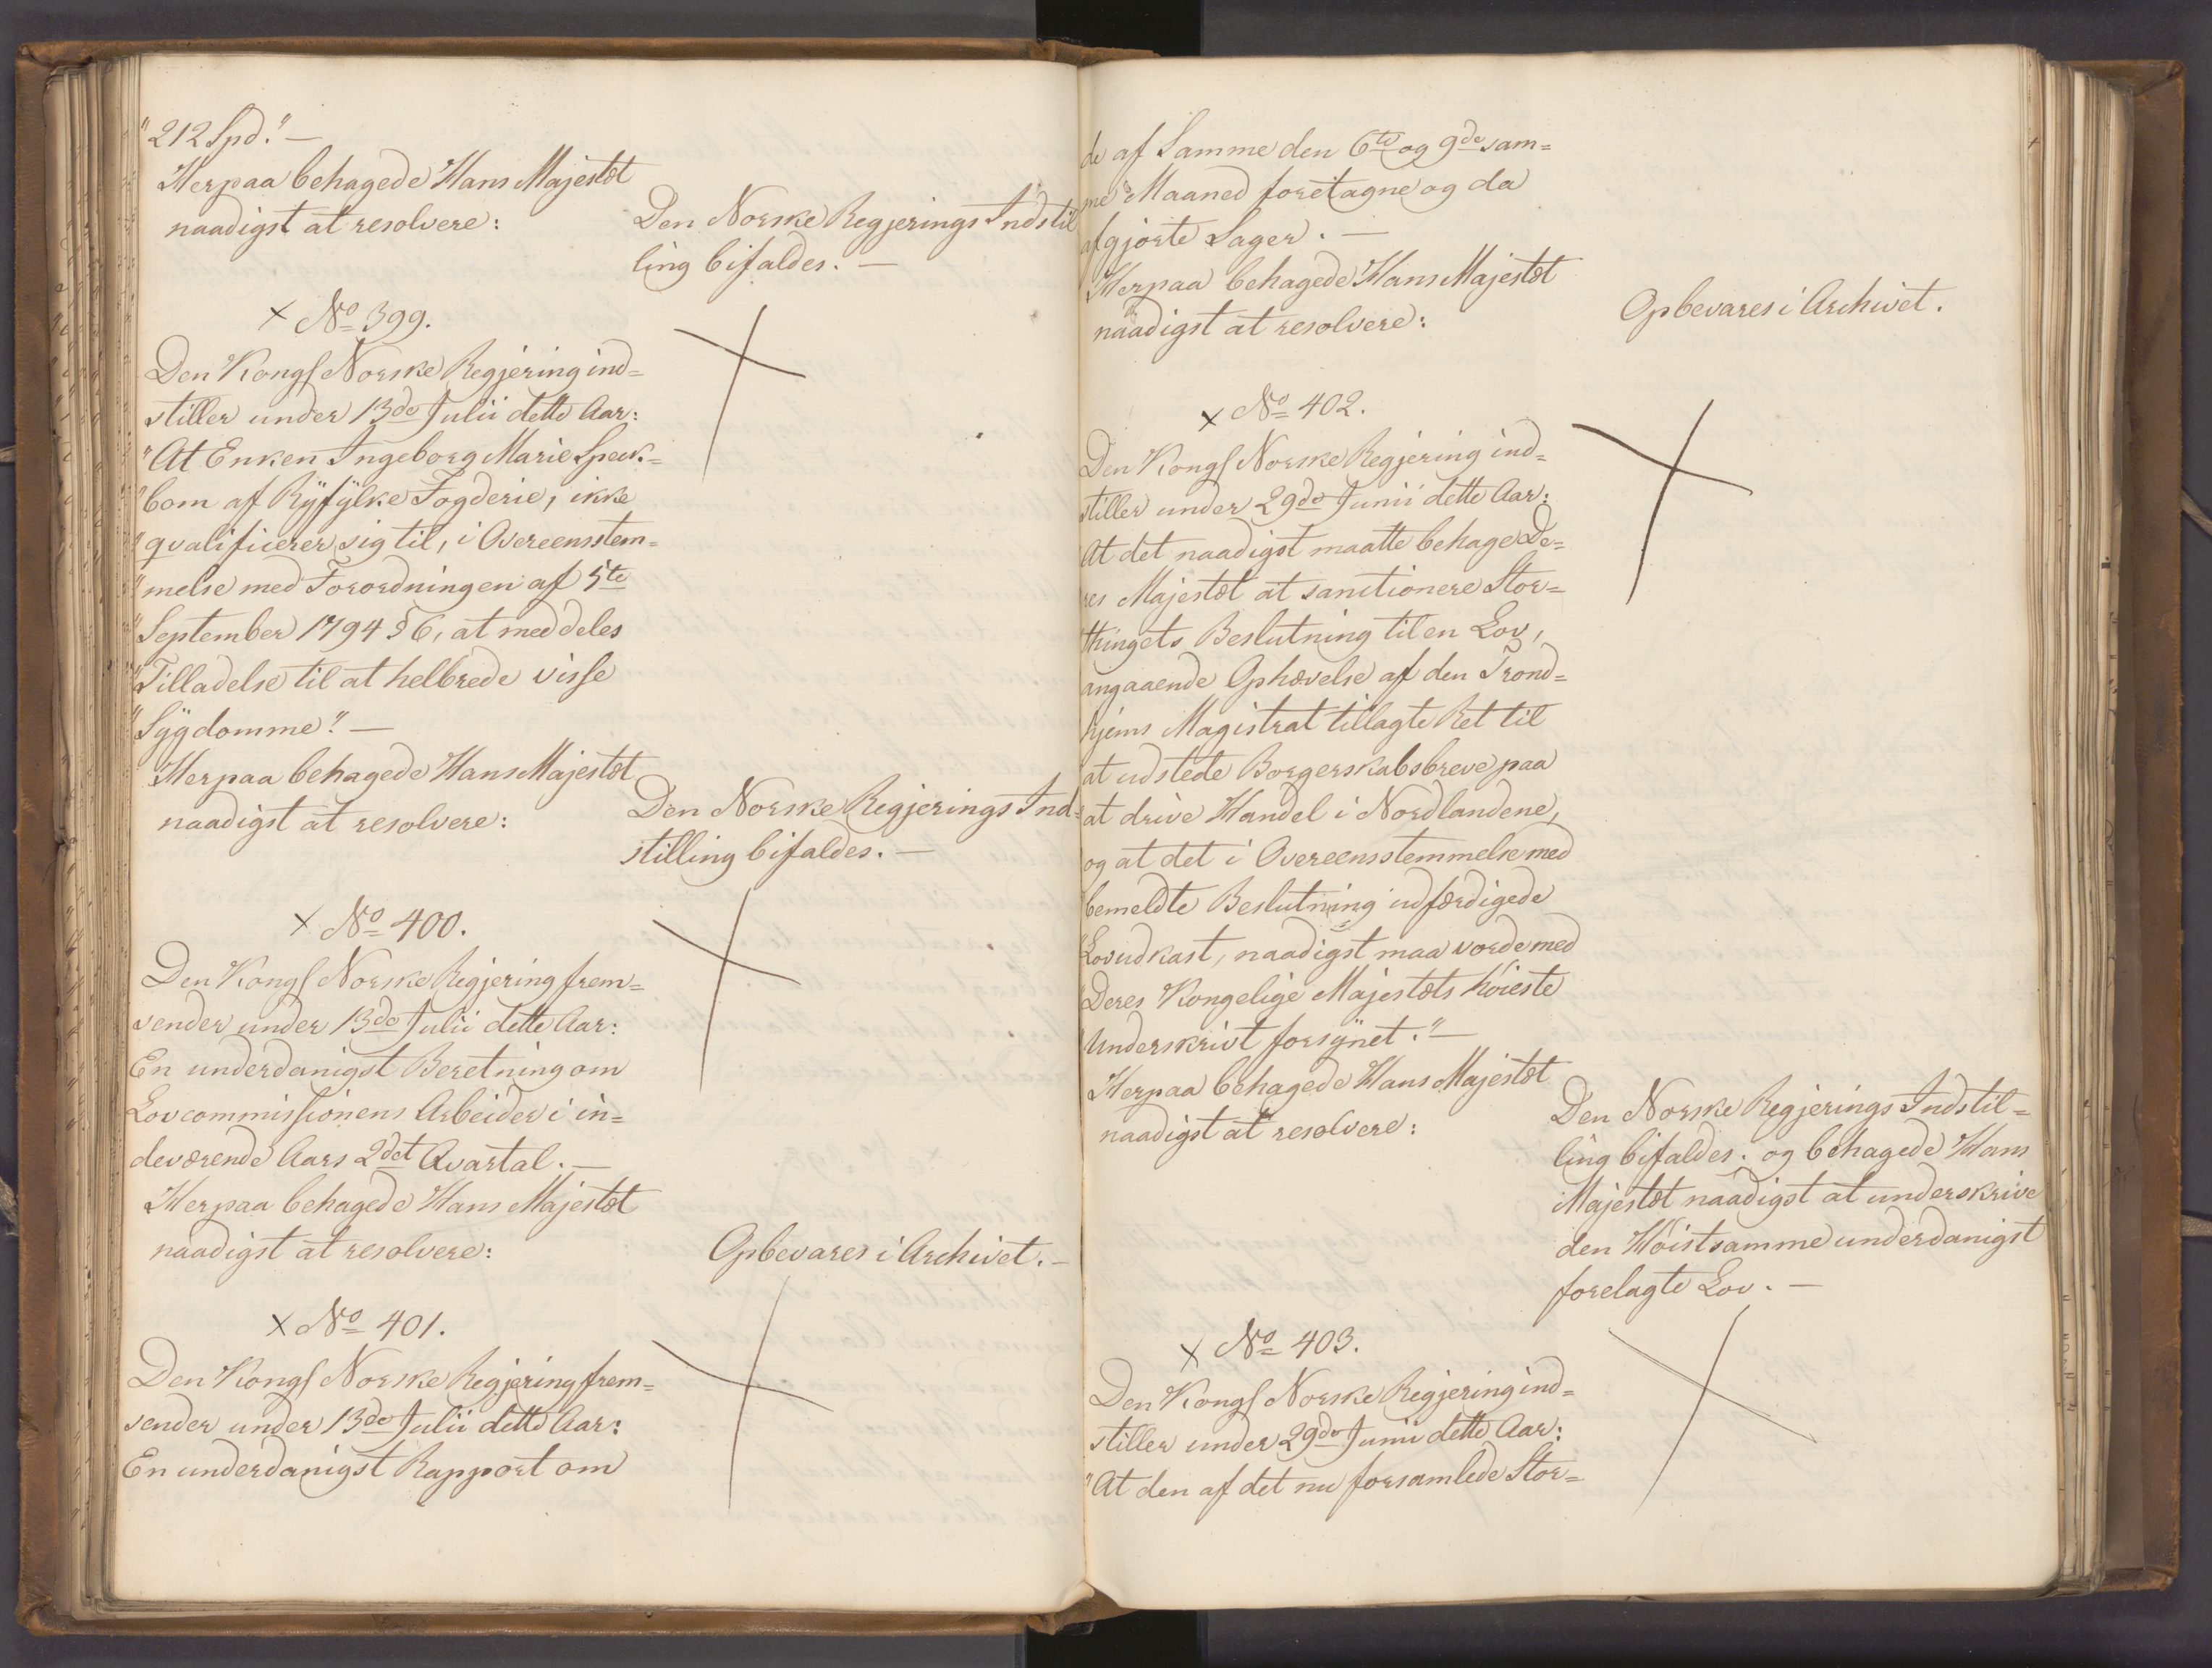 "212 Spd." —
Herpaa behagede Hans Majestæt
naadigst at resolvere:
Den Norske Regjerings Indstil
ling bifaldes. —
× No 399.
Den Kongl Norske Regjering ind=
stiller under 13de Julii dette Aar:
"At Enken Ingeborg Marie Speck=
"bom af Ryfylke Fogderie, ikke
"qvalificerer sig til, i Overeensstem=
"melse med Forordningen af 5te
"September 1794 § 6, at meddeles
"Tilladelse til at helbrede visse
"Sygdomme." —
Herpaa behagede Hans Majestæt
naadigst at resolvere:
Den Norske Regjerings Ind=
stilling bifaldes. —
× No 400.
Den Kongl Norske Regjering frem=
sender under 13de Julii dette Aar:
En underdanigst Beretning om
Lovcommissionens Arbeider i in=
deværende Aars 2det Qvartal. —
Herpaa behagede Hans Majestæt
naadigst at resolvere:
Opbevares i Archivet. —
× No 401.
Den Kongl Norske Regjering frem=
sender under 13de Julii dette Aar:
En underdanigst Rapport om
de af Samme den 6te og 9de sam=
me Maaned foretagne og da
afgjorte Sager. —
Herpaa behagede Hans Majestæt
naadigst at resolvere:
Opbevares i Archivet.
× No 402.
Den Kongl Norske Regjering ind=
stiller under 29de Junii dette Aar:
At det naadigst maatte behage De=
res Majestæt at sanctionere Stor=
thingets Beslutning til en Lov,
angaaende Ophævelse af den Trond=
hjems Magistrat tillagte Ret til
at udstede Borgerskabsbreve paa
at drive Handel i Nordlandene,
og at det i Overeensstemmelse med
bemeldte Beslutning udfærdigede
"Lovudkast, naadigst maa vorde med
"Deres Kongelige Majestæts høieste
"Underskrivt forsynet." —
Herpaa behagede Hans Majestæt
naadigst at resolvere:
Den Norske Regjerings Indstil=
ling bifaldes. og behagede Hans
Majestæt naadigst at underskrive
den Høistsamme underdanigst
forelagte Lov. —
× No 403.
Den Kongl Norske Regjering ind=
stiller under 29de Junii dette Aar:
"At den af det nu forsamlede Stor=